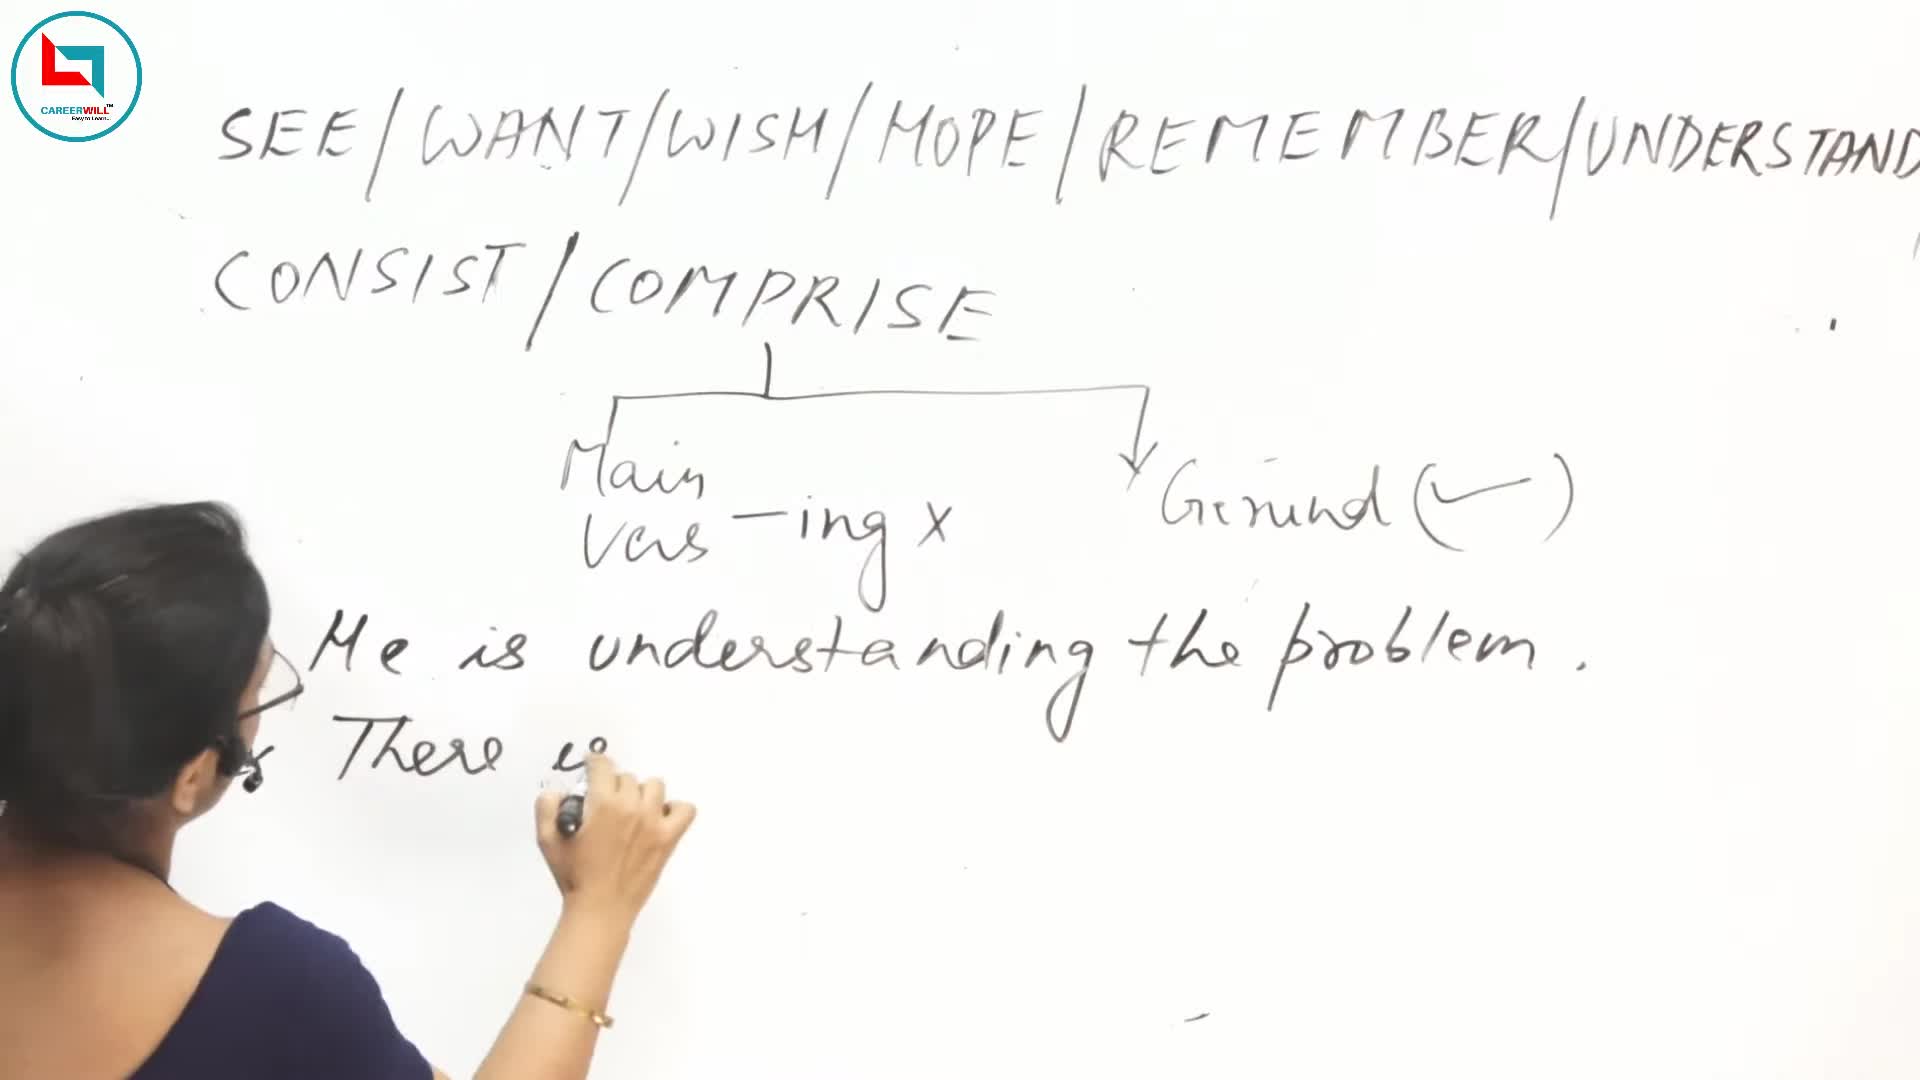 CAREERWILL™
Easy to Learn..
SEE/WANT/WISH/HOPE/REMEMBER/UNDERSTAND
CONSIST/COMPRISE
Main
Verb -ing x
Gerund (✓)
He is understanding the problem.
x There is